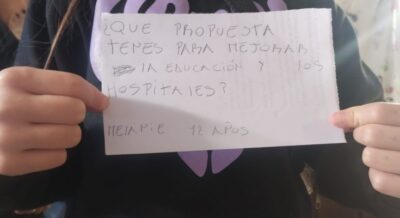 ¿QUE PROPUESTA
TENES PARA MEJORAR
LA EDUCACIÓN Y LOS
HOSPITALES?
MELANIE 12 AÑOS